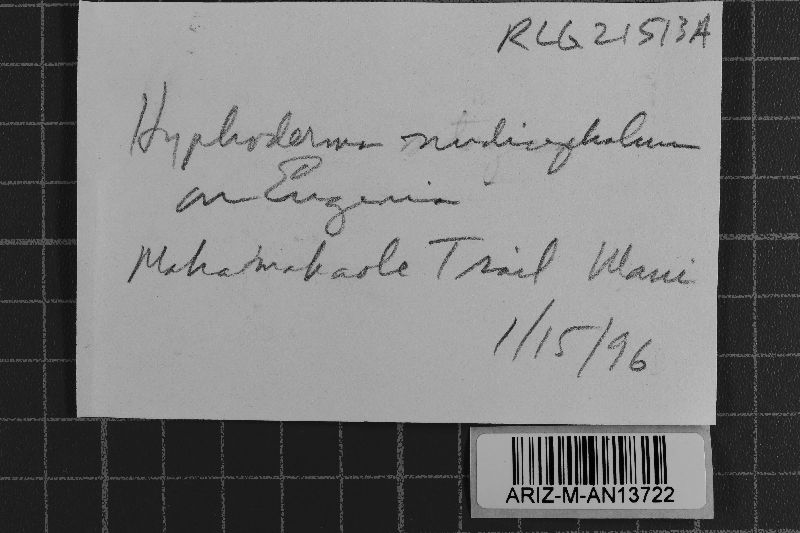 RLG 21513A
Hyphoderma nudicephalum
on Eugenia
Makamakaole Trail Maui
1/15/96
ARIZ-M-AN13722